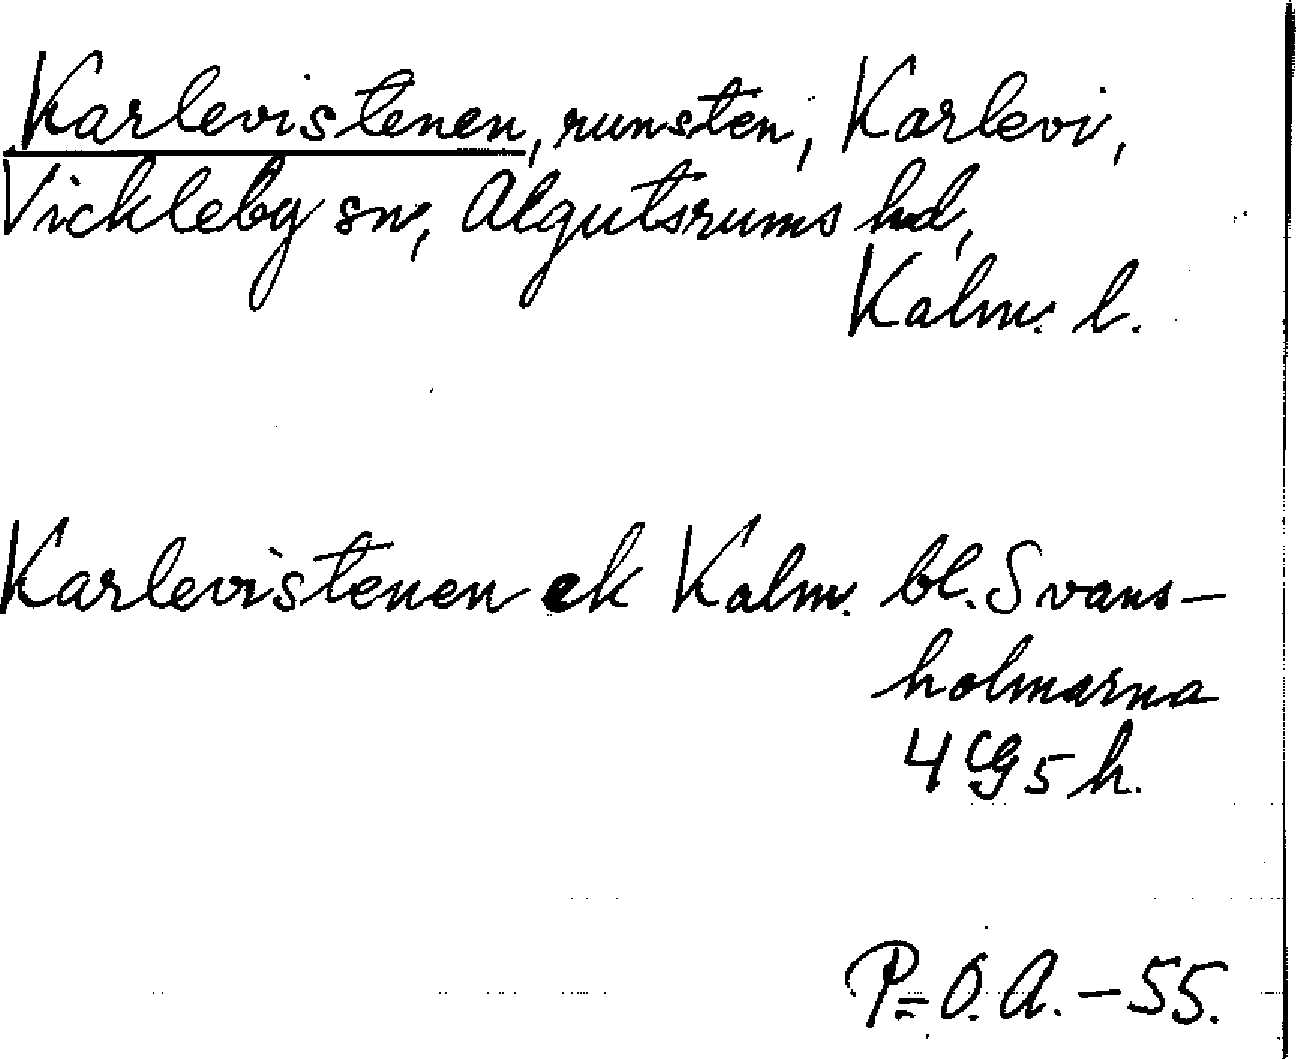 Karlevistenen, runsten, Karlevi,
Vickleby sn, Algutsrums hd,
Kalm. l.
Karlevistenen ek Kalm. bl. Svans-
holmarna
4 G 5 h.
P=O.A. - 55.